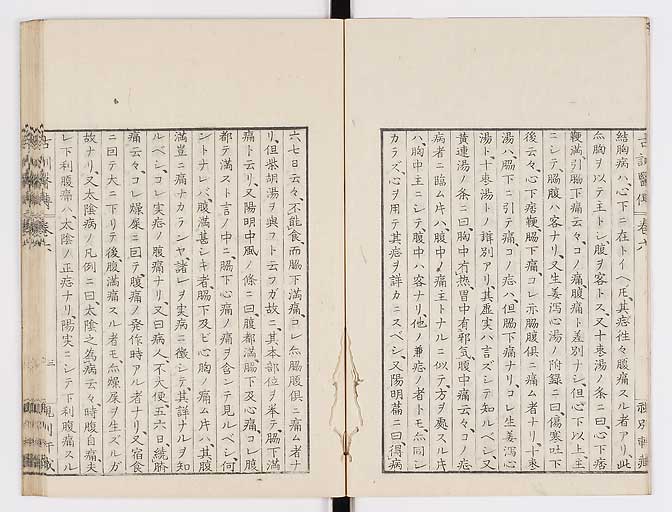 古訓醫傳 卷六
結胸病ハ心下ニ在トイヘ𪜈其症往々腹痛スルアリ此
ハ胸ヲ以テ主トシ腹ヲ客トス又十棗湯ノ条ニ曰心下痞
鞕滿引脇下痛云々コノ痛腹痛ト差別ナシ但心下以上主
ニシテ脇腹ハ客ナリ又生姜瀉心湯ノ附録ニ曰傷寒吐下
後云々心下痞鞕脇下痛コレ亦脇腹俱ニ痛ム者ナリ十棗
湯ハ脇下ニ引テ痛コノ症ハ但脇下痛ナリコレ生姜瀉心
湯ト十棗湯トノ辨別アリ其虛実ハ言ズシテ知ルベシ又
黃連湯ノ条ニ曰胸中有熱胃中有邪氣腹中痛云々コノ症
病者ニ臨ム片ハ腹中ノ痛主トナルニ似テ方ヲ處スル片
ハ胸中主ニシテ腹中ハ客ナリ他ノ兼症ノ者トモ亦同シ
カラズ心ヲ用テ其症ヲ詳カニスベシ又陽明篇ニ曰得病
六七日云々不能食而脇下滿痛コレ亦脇腹俱ニ痛ム者ナ
リ但柴胡湯ヲ與コト云フガ故ニ其本部位ヲ挙テ脇下滿
痛ト云リ又陽明中風ノ條ニ曰腹都滿脇下及心痛コレ腹
都テ滿スト言ノ中ニ脇下心痛ノ痛ヲ含ンテ見ルベシ何
ントナレバ腹滿甚シキ者脇下及ビ心胸ノ痛ム片ハ其腹
滿豈ニ痛ナカランヤ諸レヲ実病ニ徵シテ其詳ナルヲ知
ルベシコレ実症ノ腹痛ナリ又曰病人不大便五六日繞臍
痛云々コレ燥屎ニ因テ腹痛ノ発作時アル者ナリ又宿食
ニ因テ大ニ下リテ後腹滿痛スル者モ亦燥屎ヲ生ズルガ
故ナリ又太陰病ノ凡例ニ曰太陰之為病云々時腹自痛夫
レ下利腹痛ハ太陰ノ正症ナリ陽実ニシテ下利腹痛スル